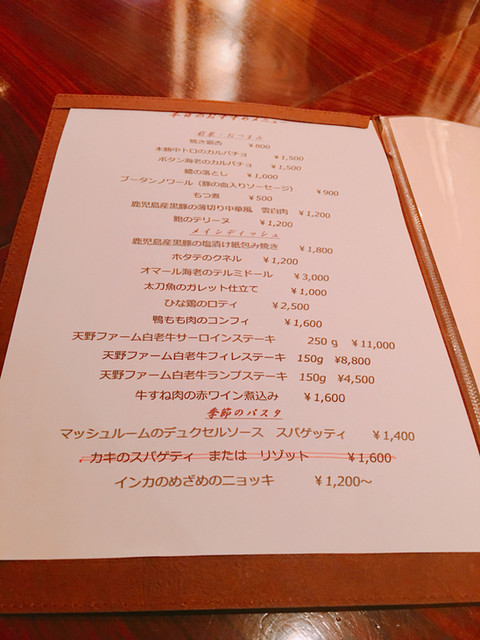 本日のおすすめメニュー
前菜・おつまみ
焼き銀杏 ¥800
本鮪中トロのカルパチョ ¥1,500
ボタン海老のカルパチョ ¥1,500
鱧の落とし ¥1,000
ブータンノワール（豚の血入りソーセージ） ¥900
もつ煮 ¥500
鹿児島産黒豚の薄切り中華風 雲白肉 ¥1,200
鮑のテリーヌ ¥1,200
メインディッシュ
鹿児島産黒豚の塩漬け紙包み焼き ¥1,800
ホタテのクネル ¥1,200
オマール海老のテルミドール ¥3,000
太刀魚のガレット仕立て ¥1,000
ひな鶏のロティ ¥2,500
鴨もも肉のコンフィ ¥1,600
天野ファーム白老牛サーロインステーキ 250ｇ ¥11,000
天野ファーム白老牛フィレステーキ 150g ¥8,800
天野ファーム白老牛ランプステーキ 150g ¥4,500
牛すね肉の赤ワイン煮込み ¥1,600
季節のパスタ
マッシュルームのデュクセルソース スパゲッティ ¥1,400
カキのスパゲティ または リゾット ¥1,600
インカのめざめのニョッキ ¥1,200～